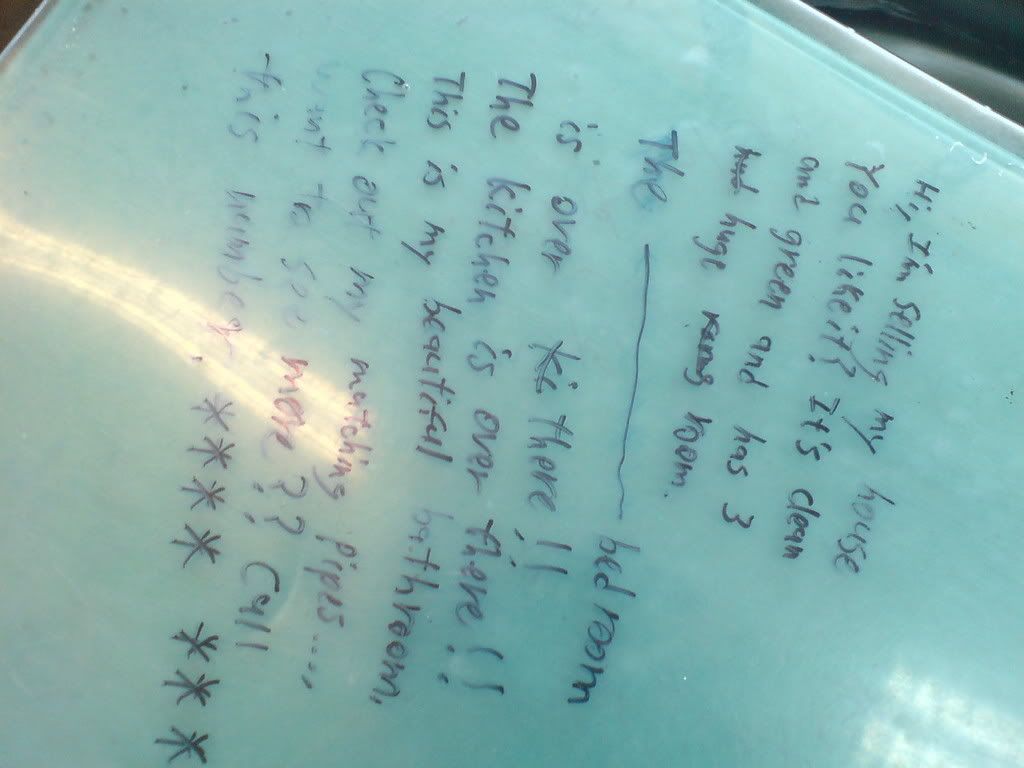 Hi, I'm selling my house
You like it? It's clean
and green and has 3
huge room.
The ______ bedroom
is over there !!
The kitchen is over there !!
This is my beautiful bathroom.
Check out my matching pipes.....
want to see more?? Call
this number: **** ***